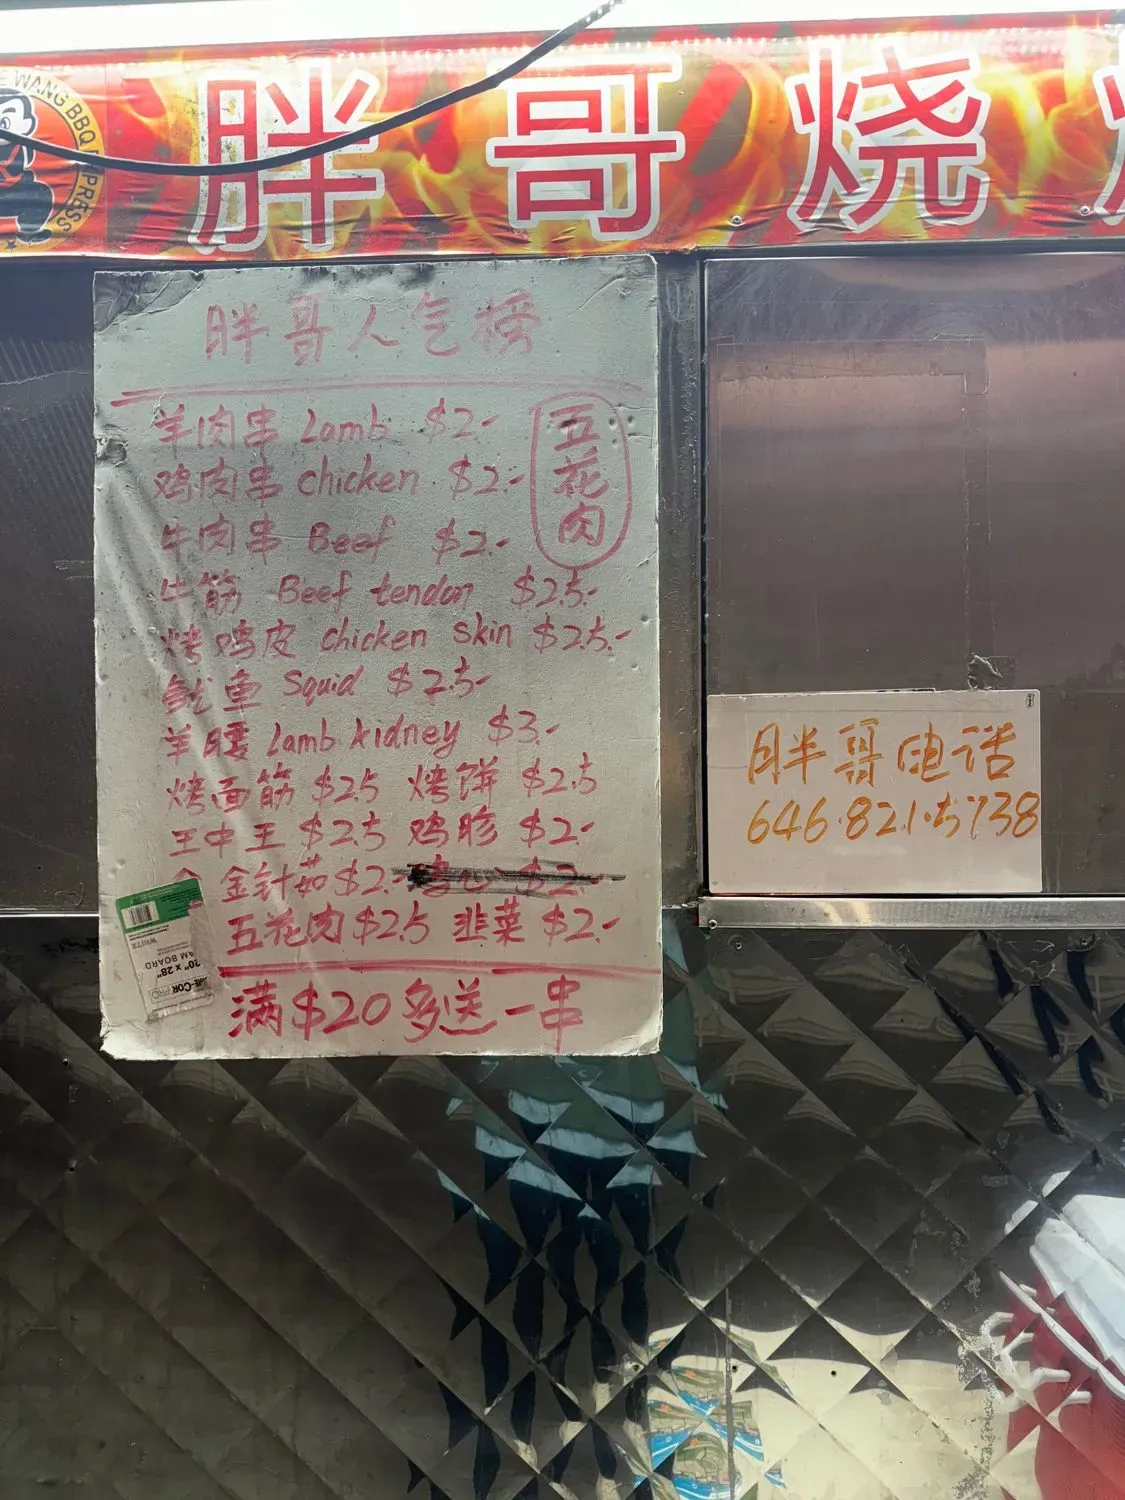 WANG BBQ EXPRESS
胖哥烧
胖哥人气榜
羊肉串 Lamb $2.-
鸡肉串 chicken $2.-
牛肉串 Beef $2.-
牛筋 Beef tendon $2.5.-
烤鸡皮 chicken skin $2.5.-
鱿鱼 Squid $2.5-
羊腰 Lamb kidney $3.-
烤面筋 $2.5 烤饼 $2.5
王中王 $2.5 鸡胗 $2.-
金针茹 $2.-
五花肉 $2.5 韭菜 $2.-
满$20多送一串
五花肉
胖哥电话
646.821.5738
WHITE
AM BOARD
20" x 28"